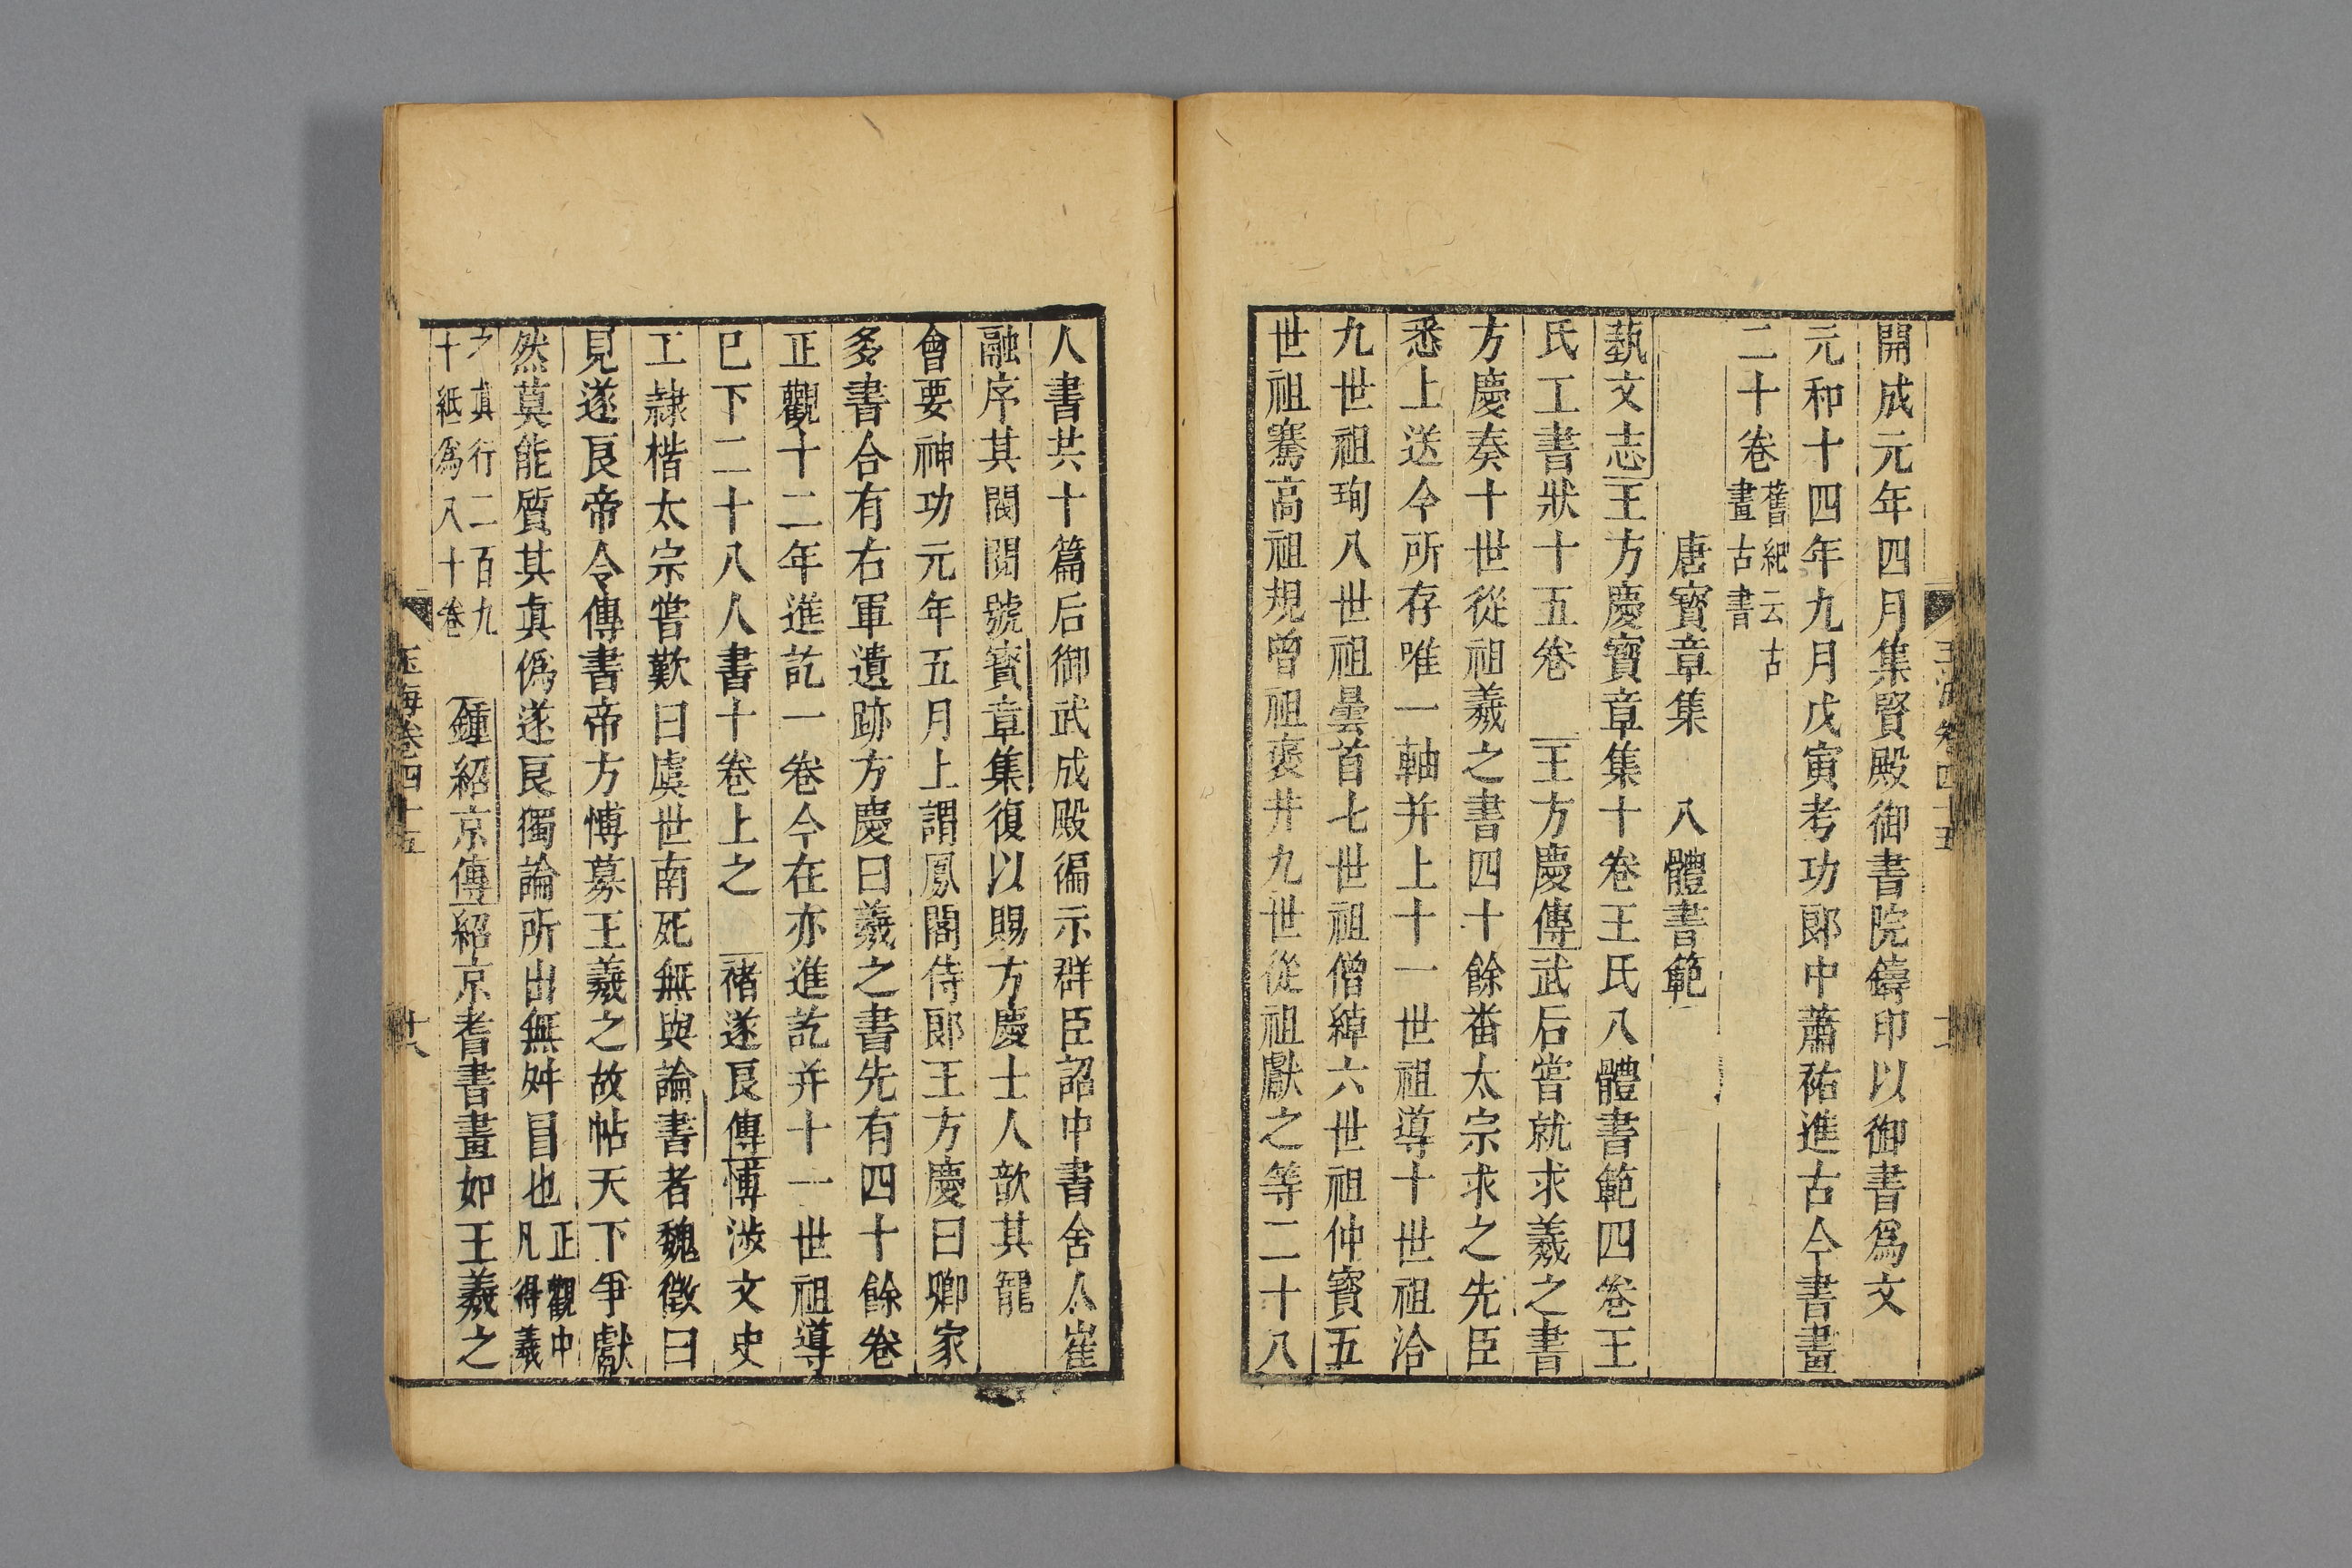 開成元年四月集賢殿御書院鑄印以御書爲文
元和十四年九月戊寅考功郎中蕭祐進古今書畫
二十卷舊紀云古畫古書
唐寳章集 八體書範
藝文志王方慶寳章集十卷王氏八體書範四卷王
氏工書狀十五卷 王方慶傳武后嘗就求羲之書
方慶奏十世從祖羲之書四十餘番太宗求之先臣
悉上送今所存唯一軸并上十一世祖導十世祖洽
九世祖珣八世祖曇首七世祖僧綽六世祖仲寳五
世祖騫高祖規曾祖褒并九世從祖獻之等二十八
人書共十篇后御武成殿徧示群臣詔中書舍人崔
融序其閥閱號寳章集復以賜方慶士人歆其寵
會要神功元年五月上謂鳳閣侍郎王方慶曰卿家
多書合有右軍遺跡方慶曰羲之書先有四十餘卷
正觀十二年進訖一卷今在亦進訖并十一世祖導
已下二十八人書十卷上之 褚遂良傳博涉文史
工隷楷太宗嘗歎曰虞世南死無與論書者魏徵曰
見遂良帝令傳書帝方博募王羲之故帖天下爭獻
然莫能質其真僞遂良獨論所出無舛冒也正觀中凡得羲
之真行二百九十紙爲八十卷 鍾紹京傳紹京耆書畫如王羲之
玉海卷四十五
玉海卷四十五 十八